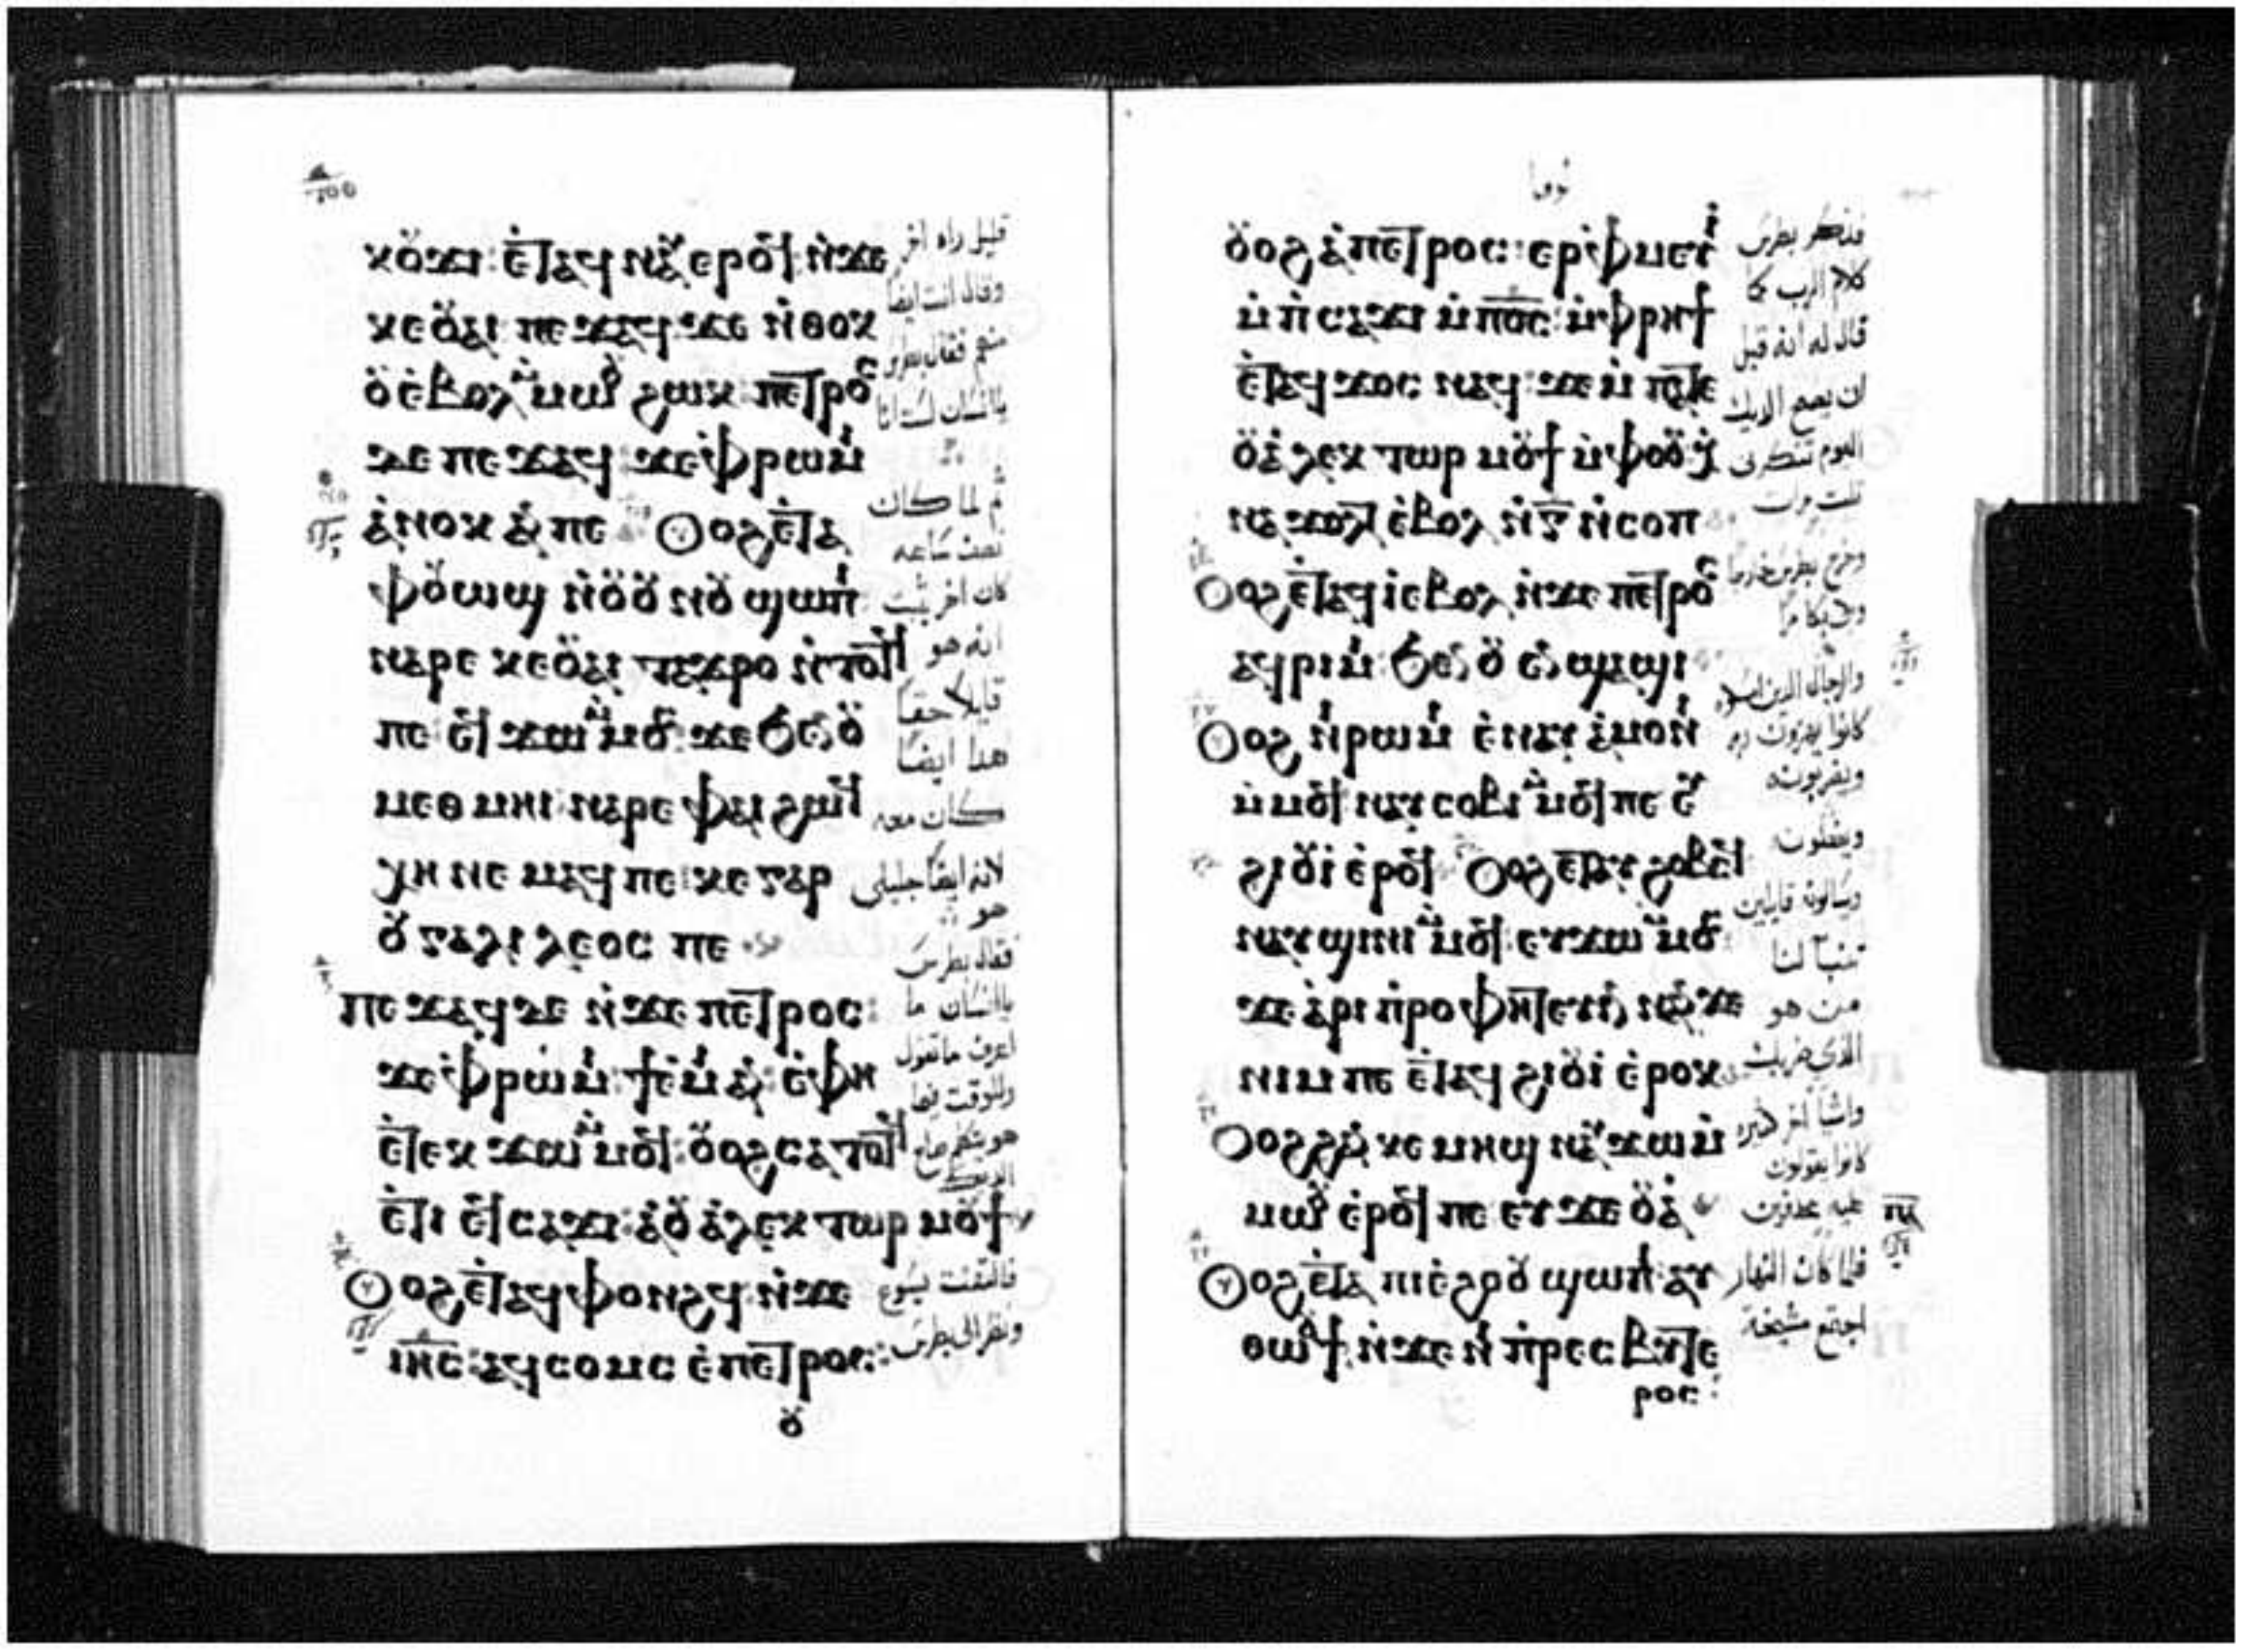 ⲕⲟⲩϫⲓ ⲉⲧⲁϥⲛⲁⲩ ⲉⲣⲟϥ ⲛ̀ϫⲉ
ⲕⲉⲟⲩⲁⲓ ⲡⲉϫⲁϥ ϫⲉ ⲛ̀ⲑⲟⲕ
ⲟⲩⲉ̀ⲃⲟⲗ ⲙ̀ⲙⲱⲟⲩ ϩⲱⲕ ⲡⲉⲧⲣⲟⲥ
ⲇⲉ ⲡⲉϫⲁϥ ϫⲉ ⲫ̀ⲣⲱⲙⲓ
ⲁ̀ⲛⲟⲕ ⲁⲛ ⲡⲉ ⲟⲩⲟϩ ⲉ̀ⲧⲁ
ⲫⲟⲩⲱϣ ⲛ̀ⲟⲩⲟⲩⲛⲟⲩ ϣⲱⲡⲓ
ⲛⲁⲣⲉ ⲕⲉⲟⲩⲁⲓ ⲧⲁϫⲣⲟ ⲛ̀ⲧⲟⲧϥ
ⲡⲉ ⲉϥϫⲱ ⲙ̀ⲙⲟⲥ ϫⲉ ϧⲉⲛ ⲟⲩ
ⲙⲉⲑⲙⲏⲓ ⲛⲁⲣⲉ ⲫⲁⲓ ϩⲱϥ
ⲭⲏ ⲛⲉⲙⲁϥ ⲡⲉ ⲕⲉ ⲅⲁⲣ
ⲟⲩⲅⲁⲗⲓⲗⲉⲟⲥ ⲡⲉ
ⲡⲉϫⲁϥ ⲇⲉ ⲛ̀ϫⲉ ⲡⲉⲧⲣⲟⲥ:
ϫⲉ ⲫ̀ⲣⲱⲙⲓ ϯⲉ̀ⲙⲓ ⲁⲛ ⲉ̀ⲫⲏ
ⲉ̀ⲧⲉⲕϫⲱ ⲙ̀ⲙⲟϥ: ⲟⲩⲟϩ ⲥⲁⲧⲟⲧϥ
ⲉ̀ⲧⲓ ⲉϥⲥⲁϫⲓ: ⲁ̀ⲟⲩⲁ̀ⲗⲉⲕⲧⲱⲣ ⲙⲟⲩϯ
ⲟⲩⲟϩ ⲉ̀ⲧⲁϥⲫⲟⲛϩϥ ⲛ̀ϫⲉ
ⲓⲏ̅ⲥ̅: ⲁϥⲥⲟⲙⲥ ⲉ̀ⲡⲉⲧⲣⲟⲥ:
ⲟⲩ
قليل راه اخر
وقال انت ايضا
منهم فقال بطرس
ياانسان لست انا
ثم لما كان
نصف ساعه
كان اخر يثبت
انه هو
قايلا حقا
هدا ايضا
كان معه
لانه ايضا جليلي
هو
فقال بطرس
ياانسان ما
اعرف ماتقول
وللوقت فيما
هو يتكلم صاح
الديك
فالتفت يسوع
ونظر الى بطرس
لوقا
ⲟⲩⲟϩ ⲁ̀ⲡⲉⲧⲣⲟⲥ: ⲉⲣⲫ̀ⲙⲉⲩⲓ̀
ⲙ̀ⲡ̀ⲥⲁϫⲓ ⲙ̀ⲡⲟ̅ⲥ̅: ⲙ̀ⲫ̀ⲣⲏϯ
ⲉ̀ⲧⲁϥϫⲟⲥ ⲛⲁϥ: ϫⲉ ⲙ̀ⲡⲁⲧⲉ
ⲟⲩⲁ̀ⲗⲉⲕⲧⲱⲣ ⲙⲟⲩϯ ⲙ̀ⲫⲟⲟⲩ ⲭ̀
ⲛⲁϫⲟⲗⲧ ⲉ̀ⲃⲟⲗ ⲛ̀ⲅ̅ ⲛ̀ⲥⲟⲡ
ⲟⲩⲟϩ ⲉ̀ⲧⲁϥⲓ̀ⲉ̀ⲃⲟⲗ ⲛ̀ϫⲉ ⲡⲉⲧⲣⲟⲥ
ⲁϥⲣⲓⲙⲓ ϧⲉⲛ ⲟⲩ ⲉⲛϣⲁϣⲓ
ⲟⲩⲟϩ ⲛⲓⲣⲱⲙⲓ ⲉ̀ⲛⲁⲩⲁ̀ⲙⲟⲛⲓ
ⲙ̀ⲙⲟϥ ⲛⲁⲩⲥⲟⲃⲓ ⲙ̀ⲙⲟϥ ⲡⲉ ⲉⲩ
ϩⲓⲟⲩⲓ̀ ⲉ̀ⲣⲟϥ ⲟⲩⲟϩ ⲉ̀ⲧⲁⲩϩⲟⲃⲥϥ
ⲛⲁⲩϣⲓⲛⲓ ⲙ̀ⲙⲟϥ: ⲉⲩϫⲱ ⲙ̀ⲙⲟⲥ
ϫⲉ ⲁ̀ⲣⲓⲡ̀ⲣⲟⲫⲏⲧⲉⲩⲓⲛ ⲛⲁⲛ ϫⲉ
ⲛⲓⲙ ⲡⲉ ⲉ̀ⲧⲁϥϩⲓⲟⲩⲓ̀ ⲉ̀ⲣⲟⲕ
ⲟⲩⲟϩ ϩⲁⲛⲕⲉⲙⲏϣ ⲛⲁⲩϫⲱ ⲙ̀
ⲙⲱⲟⲩ ⲉ̀ⲣⲟϥ ⲡⲉ ⲉⲩϫⲉ ⲟⲩⲁ̀
ⲟⲩⲟϩ ⲉ̀ⲧⲁ ⲡⲓⲉ̀ϩⲟⲟⲩ ϣⲱⲡⲓ ⲁⲩ
ⲑⲱⲟⲩϯ ⲛ̀ϫⲉ ⲛⲓⲡ̀ⲣⲉⲥⲃⲩⲧⲉ
ⲣⲟⲥ:
فذكر بطرس
كلام الرب كما
قال له انه قبل
ان يصيح الديك
اليوم تنكرنى
ثلت مرات
وخرج بطرس خارجا
وبكى بكا مرا
والرجال الدين
كانوا
ويضربونه
ويغطون
ويسالونه قايلين
تنبا لنا
من هو
الذي ضربك
واشيا اخر كثيره
كانوا يقولون
عليه
فلما كان النهار
اجتمع مشيخة